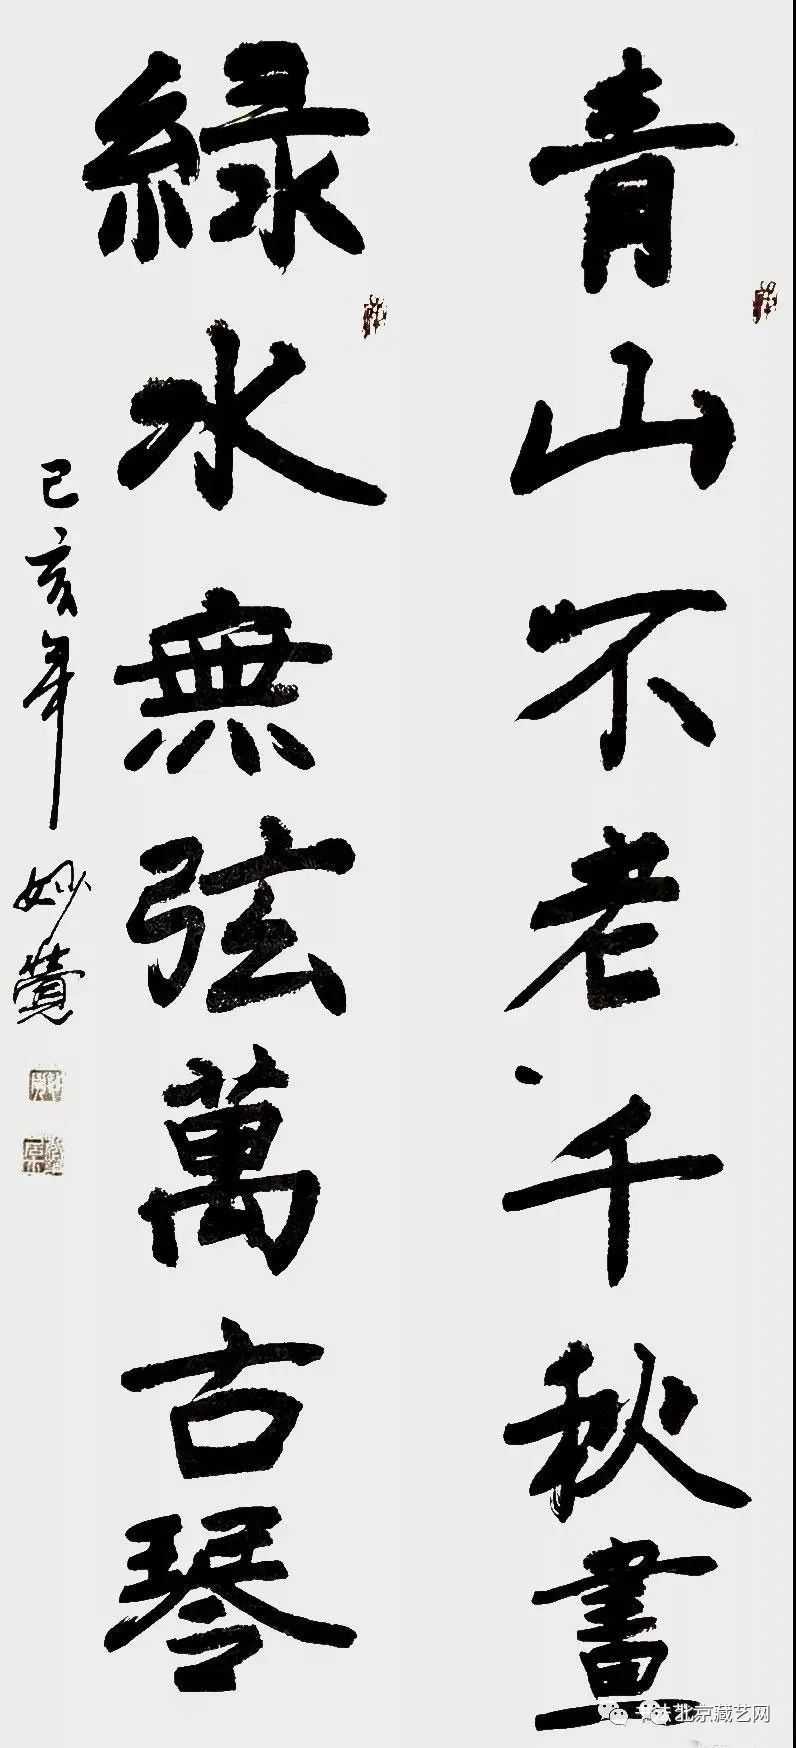 青山不老千秋畫
緑水無弦萬古琴
己亥年妙覺
北京藏艺网